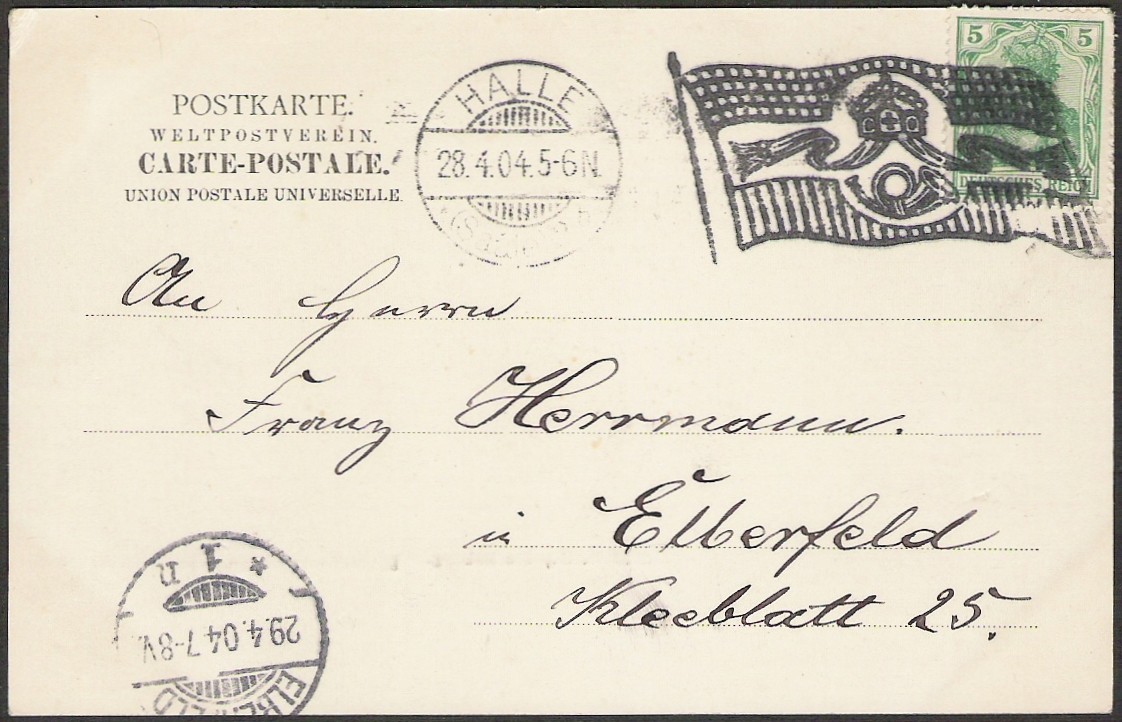 POSTKARTE.
WELTPOSTVEREIN.
CARTE-POSTALE.
UNION POSTALE UNIVERSELLE.
HALLE
28.4.04.5-6N.
5 5
DEUTSCHES REICH
An Herrn
Franz Herrmann.
in Elberfeld
Kleeblatt 25.
* 1 n
29.4.04.7-8V.
ELBERFELD